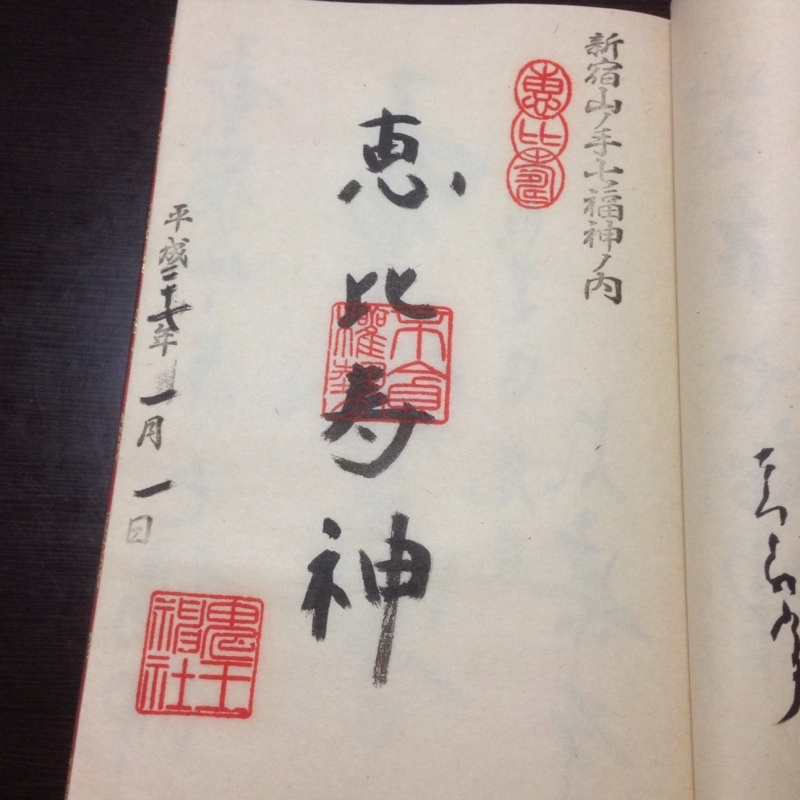 新宿山ノ手七福神ノ内
惠比壽
恵比寿神
平成二十七年一月一日
鬼王神社